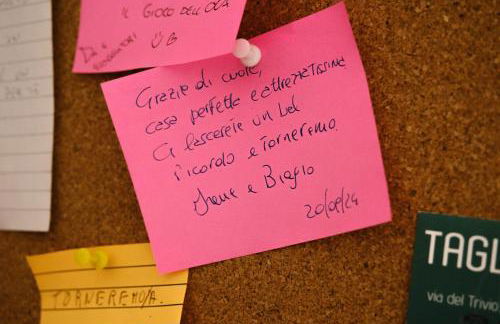 IL GIOCO DELL'OCA
Grazie di cuore,
casa perfetta e attrezzatissima
Ci lascerete un bel
ricordo e torneremo.
Irene e Biagio
20/09/24
TORNEREMO/A.
TAGL
via del Trivio